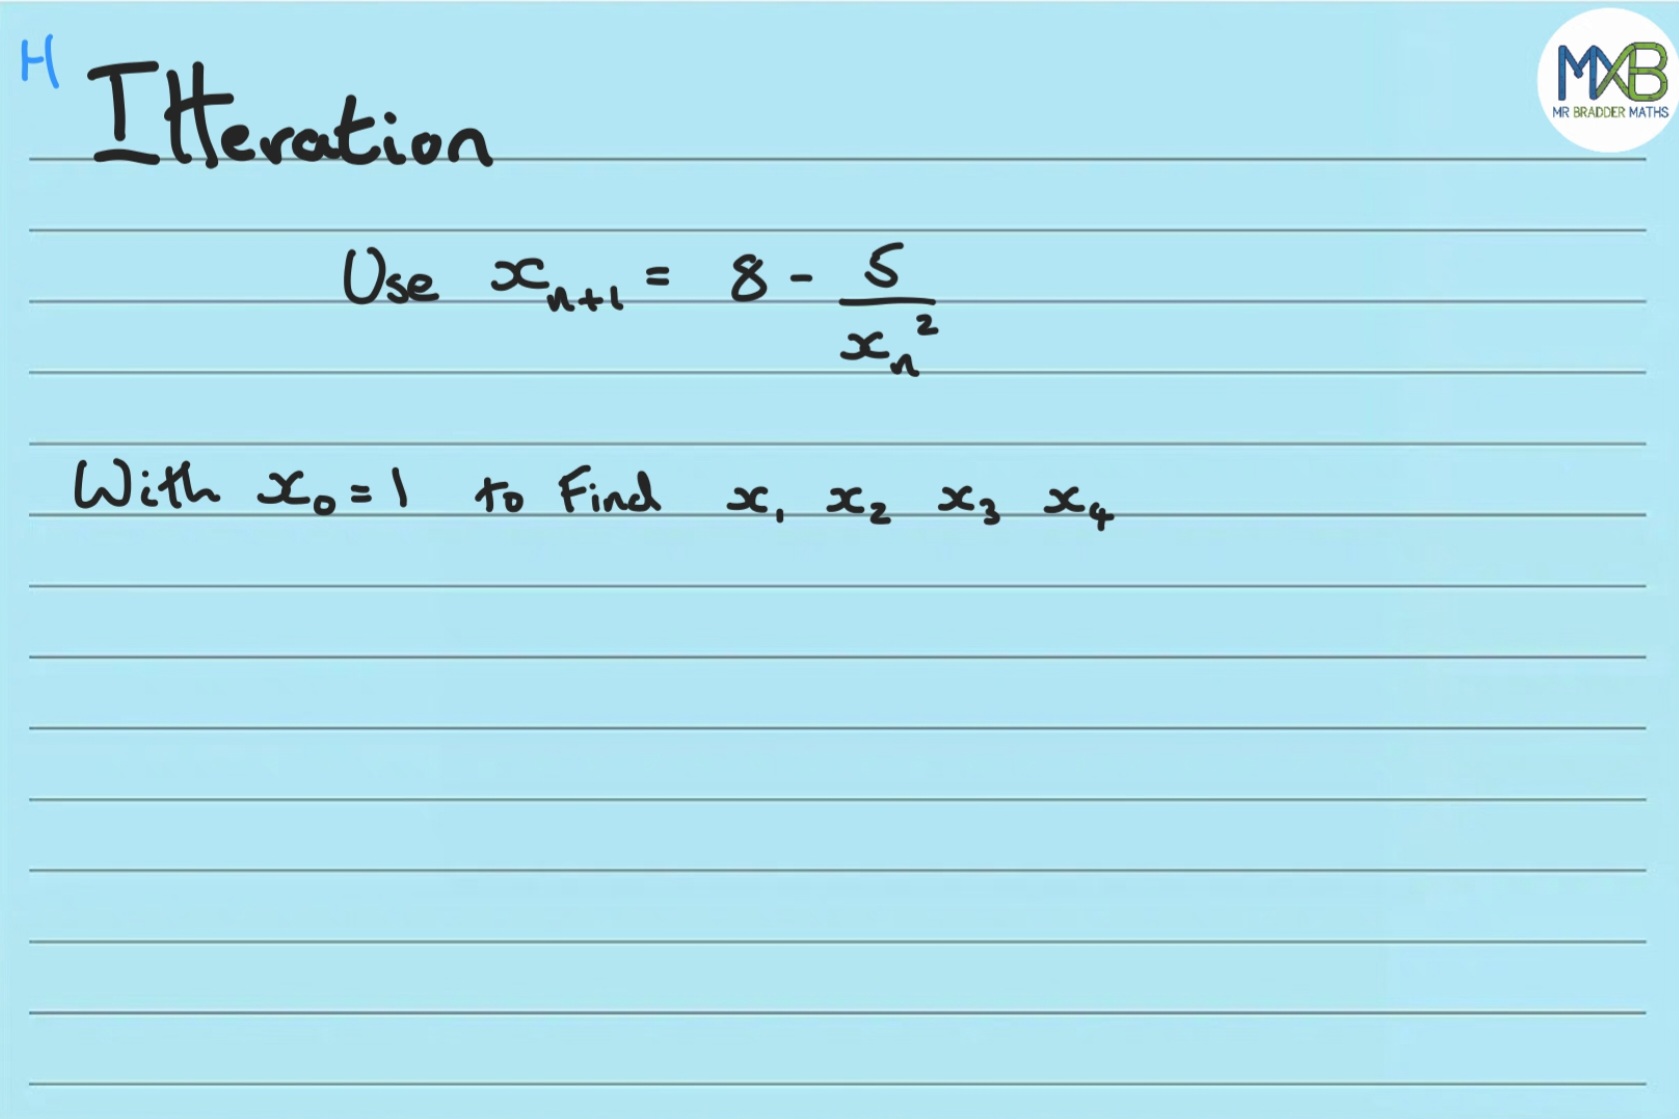 H
Itteration
MXB
MR BRADDER MATHS
Use xₙ₊₁ = 8 - 5/xₙ²
With x₀=1 to Find x₁ x₂ x₃ x₄